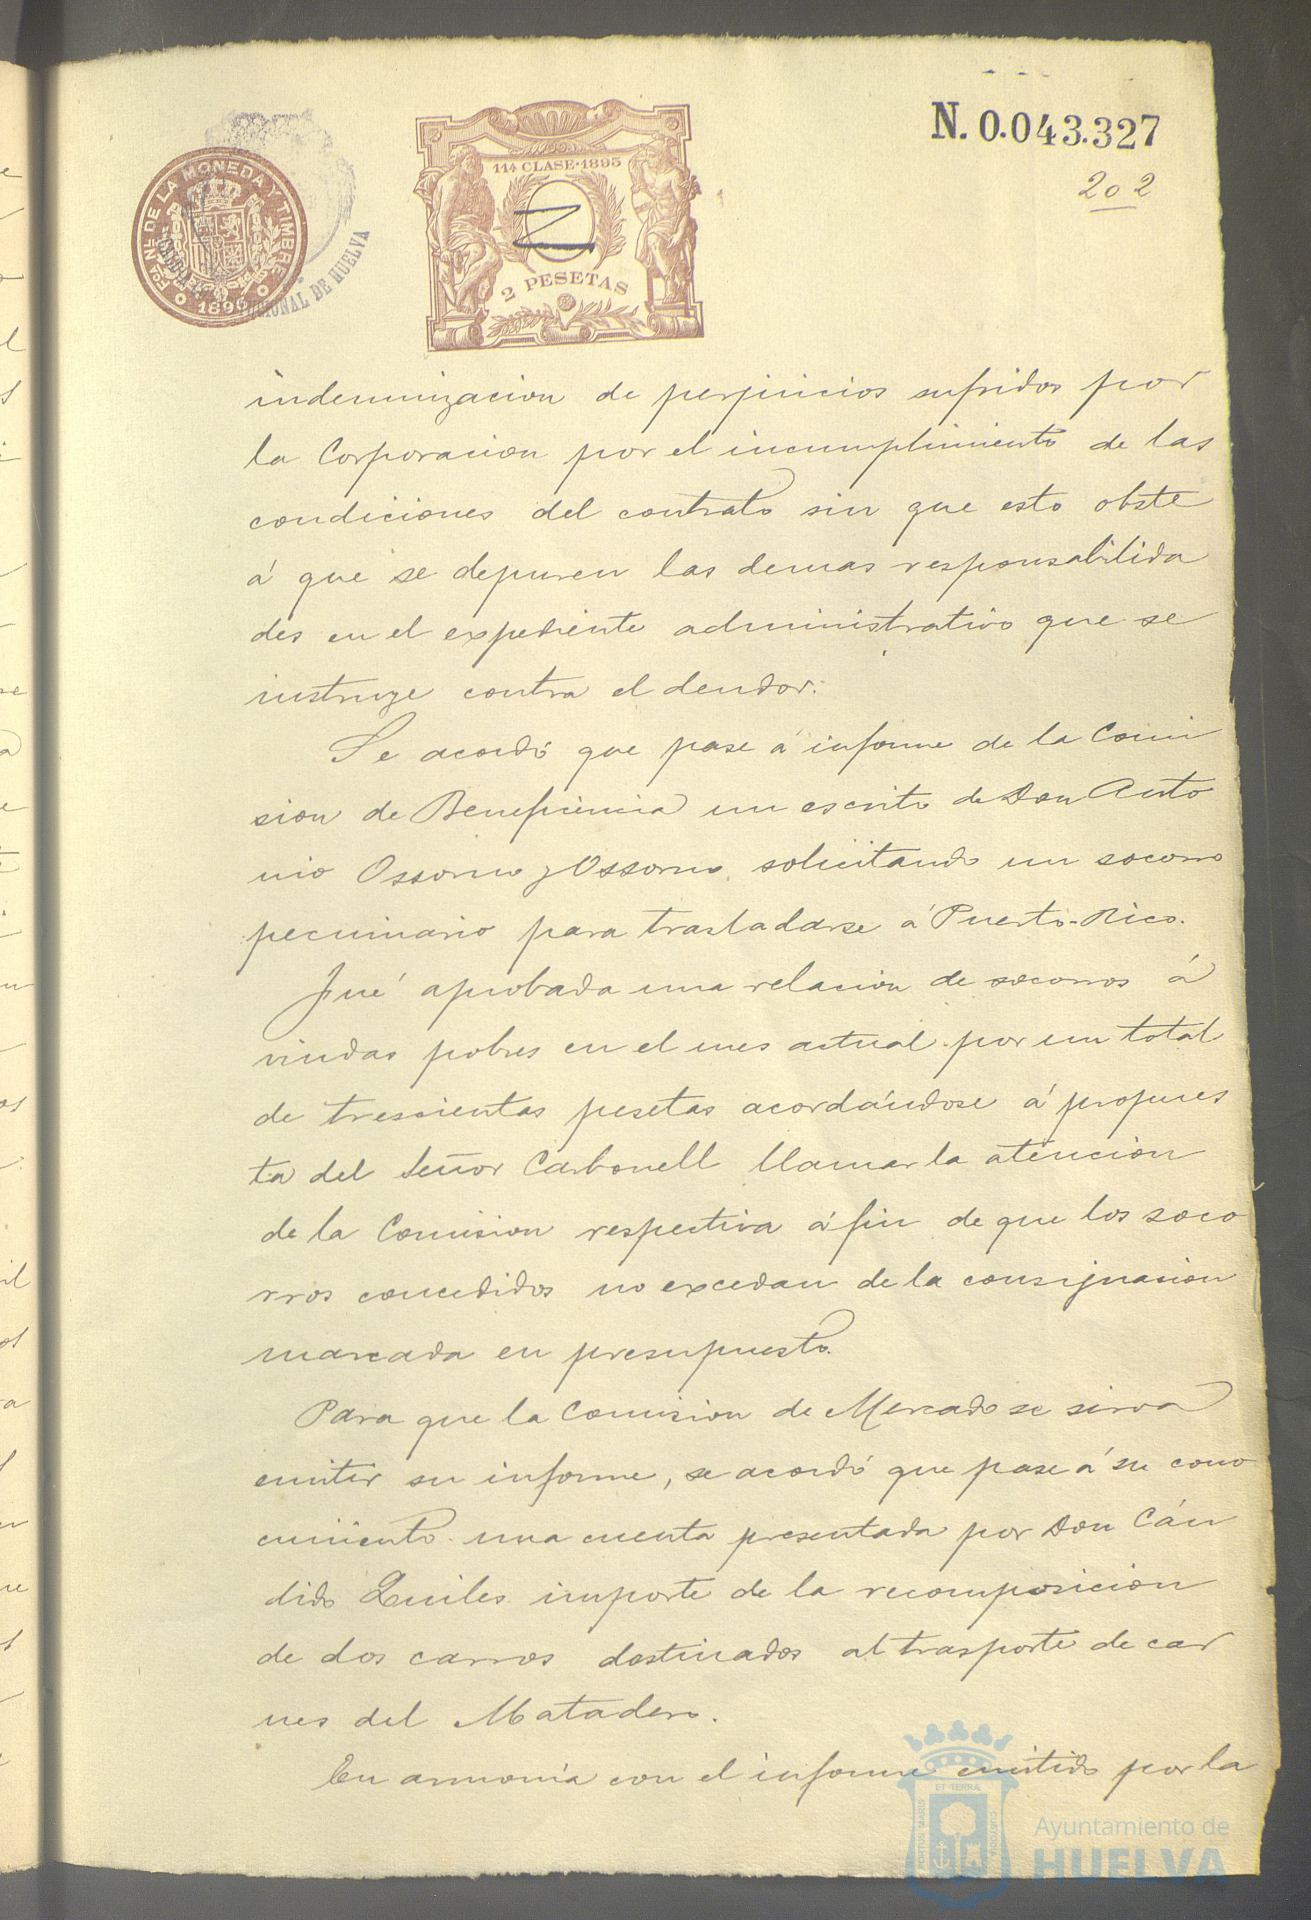 N. 0.043.327
202
FCA NL DE LA MONEDA Y TIMBRE
1895
CIONAL DE HUELVA
11ª CLASE·1895
2 PESETAS
indemnizacion de perjuicios sufridos por
la Corporacion por el incumplimiento de las
condiciones del contrato sin que esto obste
á que se depuren las demas responsabilida
des en el expediente administrativo que se
instruye contra el deudor.
Se acordó que pase á informe de la Comi
sion de Beneficencia un escrito de Don Anto
nio Ossorno y Ossorno, solicitando un socorro
pecuniario para trasladarse á Puerto-Rico.
Fué aprobada una relacion de socorros á
viudas pobres en el mes actual por un total
de trescientas pesetas acordándose á propues
ta del Señor Carbonell llamar la atencion
de la Comision respectiva á fin de que los soco
rros concedidos no excedan de la consignacion
marcada en presupuesto.
Para que la Comision de Mercado se sirva
emitir su informe, se acordó que pase á su cono
cimiento una cuenta presentada por Don Cán
dido Quiles importe de la recomposicion
de dos carros destinados al trasporte de car
nes del Matadero.
En armonía con el informe emitido por la
ET TERRA
PORTUS MARIS
CUSTODIA
Ayuntamiento de
HUELVA